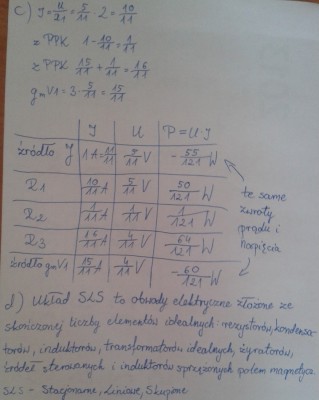 c) J = U/R1 = 5/11 · 2 = 10/11
z PPK 1 - 10/11 = 1/11
z PPK 15/11 + 1/11 = 16/11
gmV1 = 3 · 5/11 = 15/11
J U P = U·J
źródło J 1A = 11/11 5/11 V - 55/121 W
R1 10/11 A 5/11 V 50/121 W
R2 1/11 A 1/11 V 1/121 W
R3 16/11 A 4/11 V 64/121 W
źródło gmV1 15/11 A 4/11 V - 60/121 W
te same
zwroty
prądu i
napięcia
d) Układ SLS to obwody elektryczne złożone ze
skończonej liczby elementów idealnych: rezystorów, kondensa-
torów, induktorów, transformatorów idealnych, żyratorów,
źródeł sterowanych i induktorów sprzężonych polem magnetycz.
SLS - Stacjonarne, Liniowe, Skupione